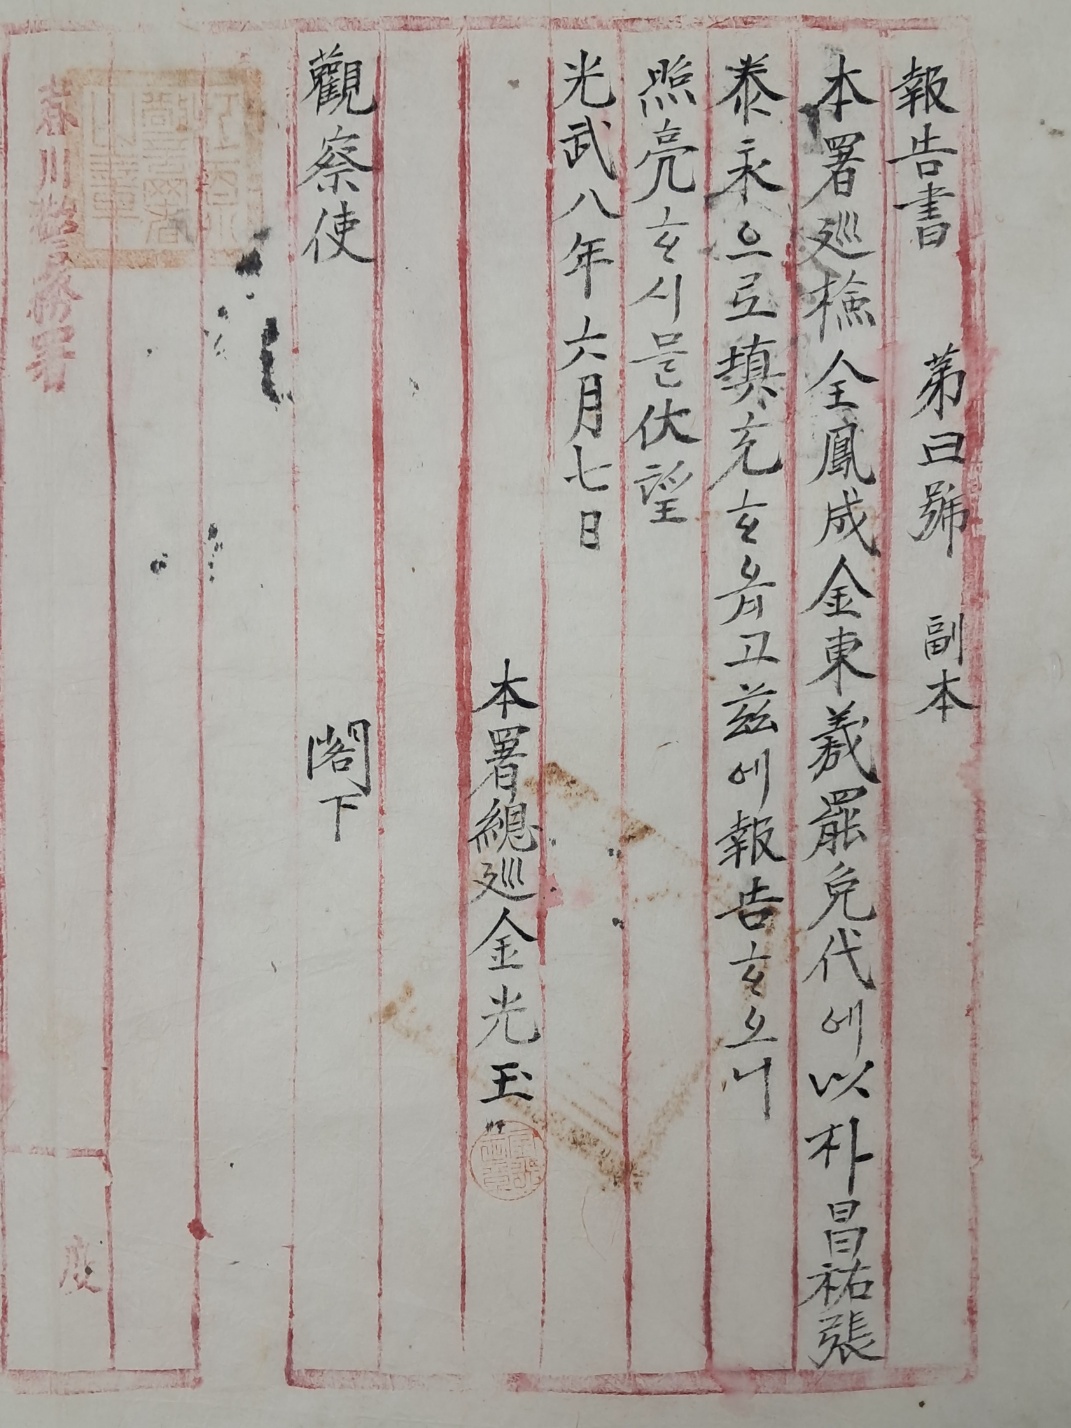 報告書 第 號 副本
本署巡檢全鳳成金東義罷免代에以朴昌祐張
泰永으로填充ᄒᆞ옵고玆에報告ᄒᆞ오니
照亮ᄒᆞ시믈伏望
光武八年六月七日
本署總巡金光玉
觀察使 閣下
春川警務署 度